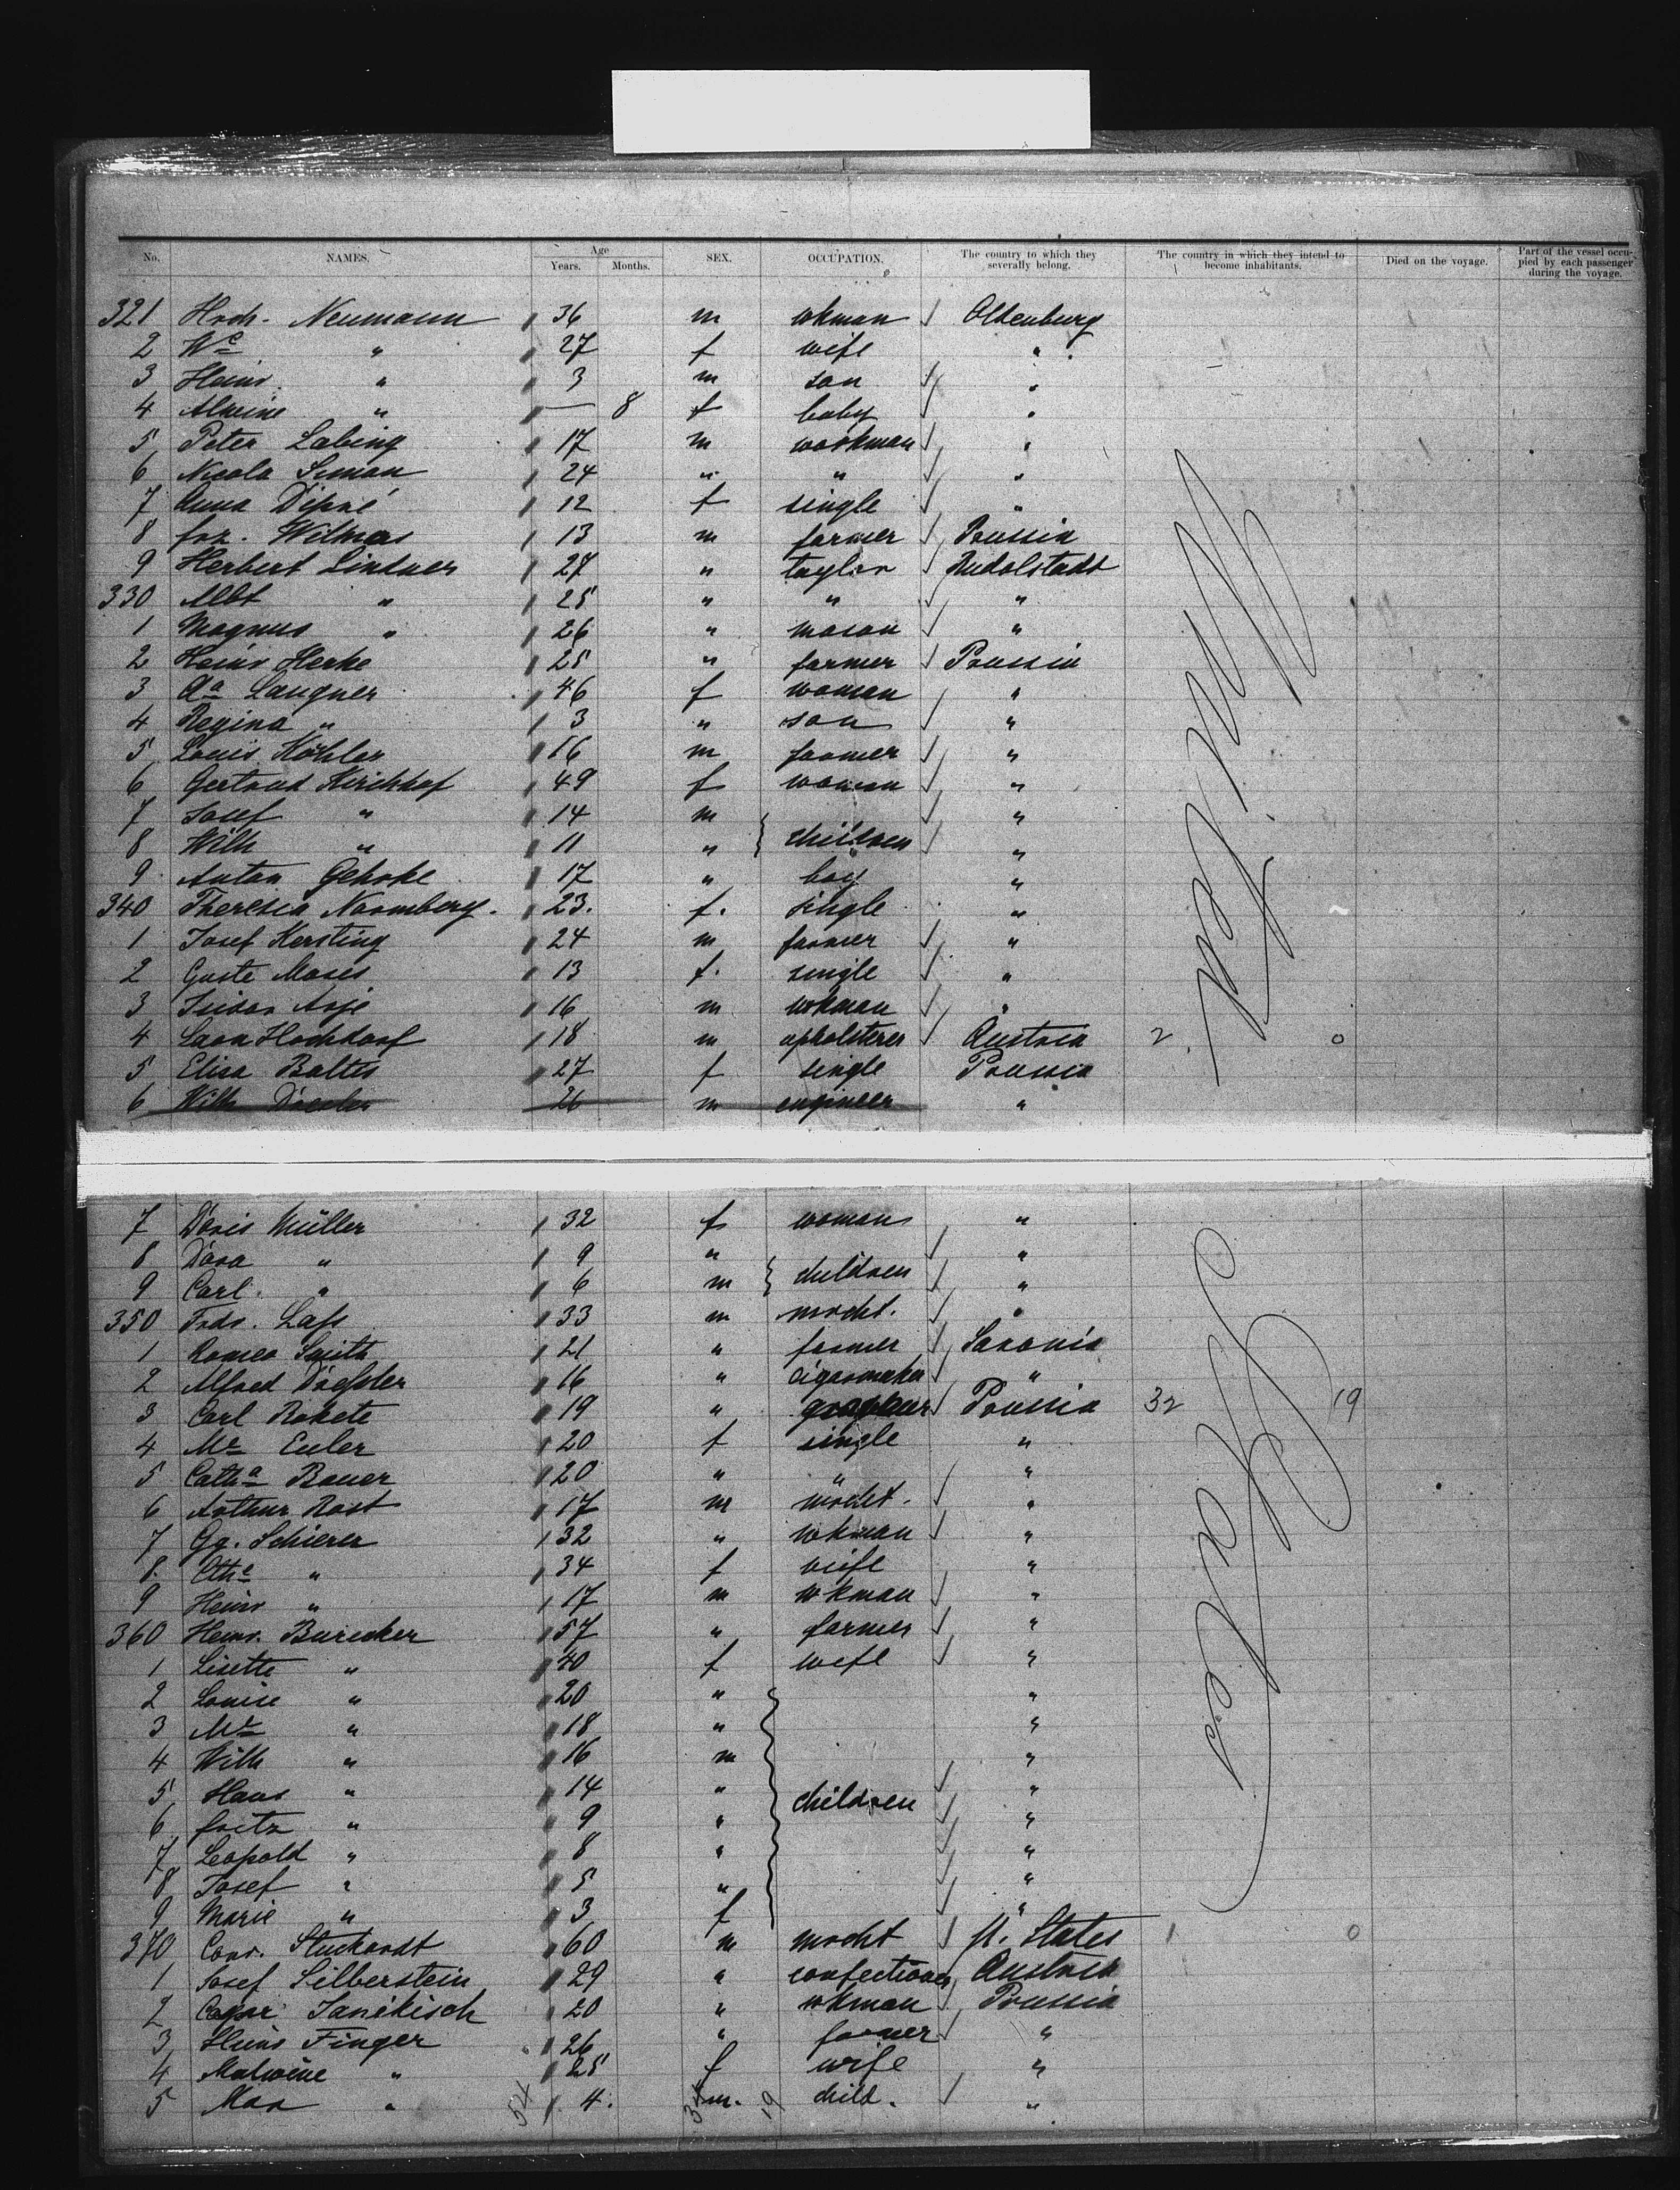 No. NAMES. Age Years. Months. SEX. OCCUPATION. The country to which they severally belong. The country in which they intend to become inhabitants. Died on the voyage. Part of the vessel occupied by each passenger during the voyage.
321 Hrch. Neumann 36 m wkman Oldenburg
2 " 27 f wife "
3 Heinr. " 3 m son "
4 Alwine " — 8 f baby "
5 Peter Labing 17 m workman "
6 Nicola Siman 24 " " "
7 Anna 12 f single "
8 Frz. Wilmas 13 m farmer Prussia
9 Herbert Lindner 27 " taylor Rudolstadt
330 Albt " 25 " " "
1 Magnus " 26 " mason "
2 Heinr Herke 25 " farmer Prussia
3 Aa Langner 46 f woman "
4 Regina " 3 " son "
5 Louis Köhler 16 m farmer "
6 Gertrud Kirchhof 49 f woman "
7 Josef " 14 m "
8 Wilh " 11 " children "
9 Anton Gehrke 17 " boy "
340 Theresia Noomberg. 23. f. single "
1 Josef Kersting 24 m farmer "
2 Guste Moses 13 f. single "
3 16 m wkman "
4 Hochdorf 18 m upholsterer Austria 2 0
5 Elisa Baltes 27 f single Prussia
6 Wilh 26 m engineer "
7 Doris Müller 32 f woman "
8 Dora " 9 " "
9 Carl. " 6 m children "
350 Frdr. Lass 33 m mrcht. "
1 Romeo Smith 21 " farmer Saxonia
2 Alfred Dressler 16 " cigarmaker "
3 Carl Rakete 19 " Prussia 32 19
4 Euler 20 f single "
5 Catha Bauer 20 " " "
6 Arthur Rost 17 m mrcht. "
7 Gg. Schierer 32 " wkman "
8. " 34 f wife "
9 Heinr " 17 m wkman "
360 Heinr. Burecker 57 " farmer "
1 Lisette " 40 f wife "
2 Louise " 20 " "
3 " 18 " "
4 Wilh " 16 m "
5 Hans " 14 " children "
6 Fritz " 9 " "
7 Leopold " 8 " "
8 Josef " 5 " "
9 Marie " 3 f "
370 Conr. Stuckardt 60 m mrcht U. States 1 0
1 Josef Silberstein 29 " confectioner Austria
2 Janikisch 20 " wkman Prussia
3 Heinr Finger 26 " farmer "
4 Malwine " 25 f wife "
5 Max " 4. m. child. "
54 34 19